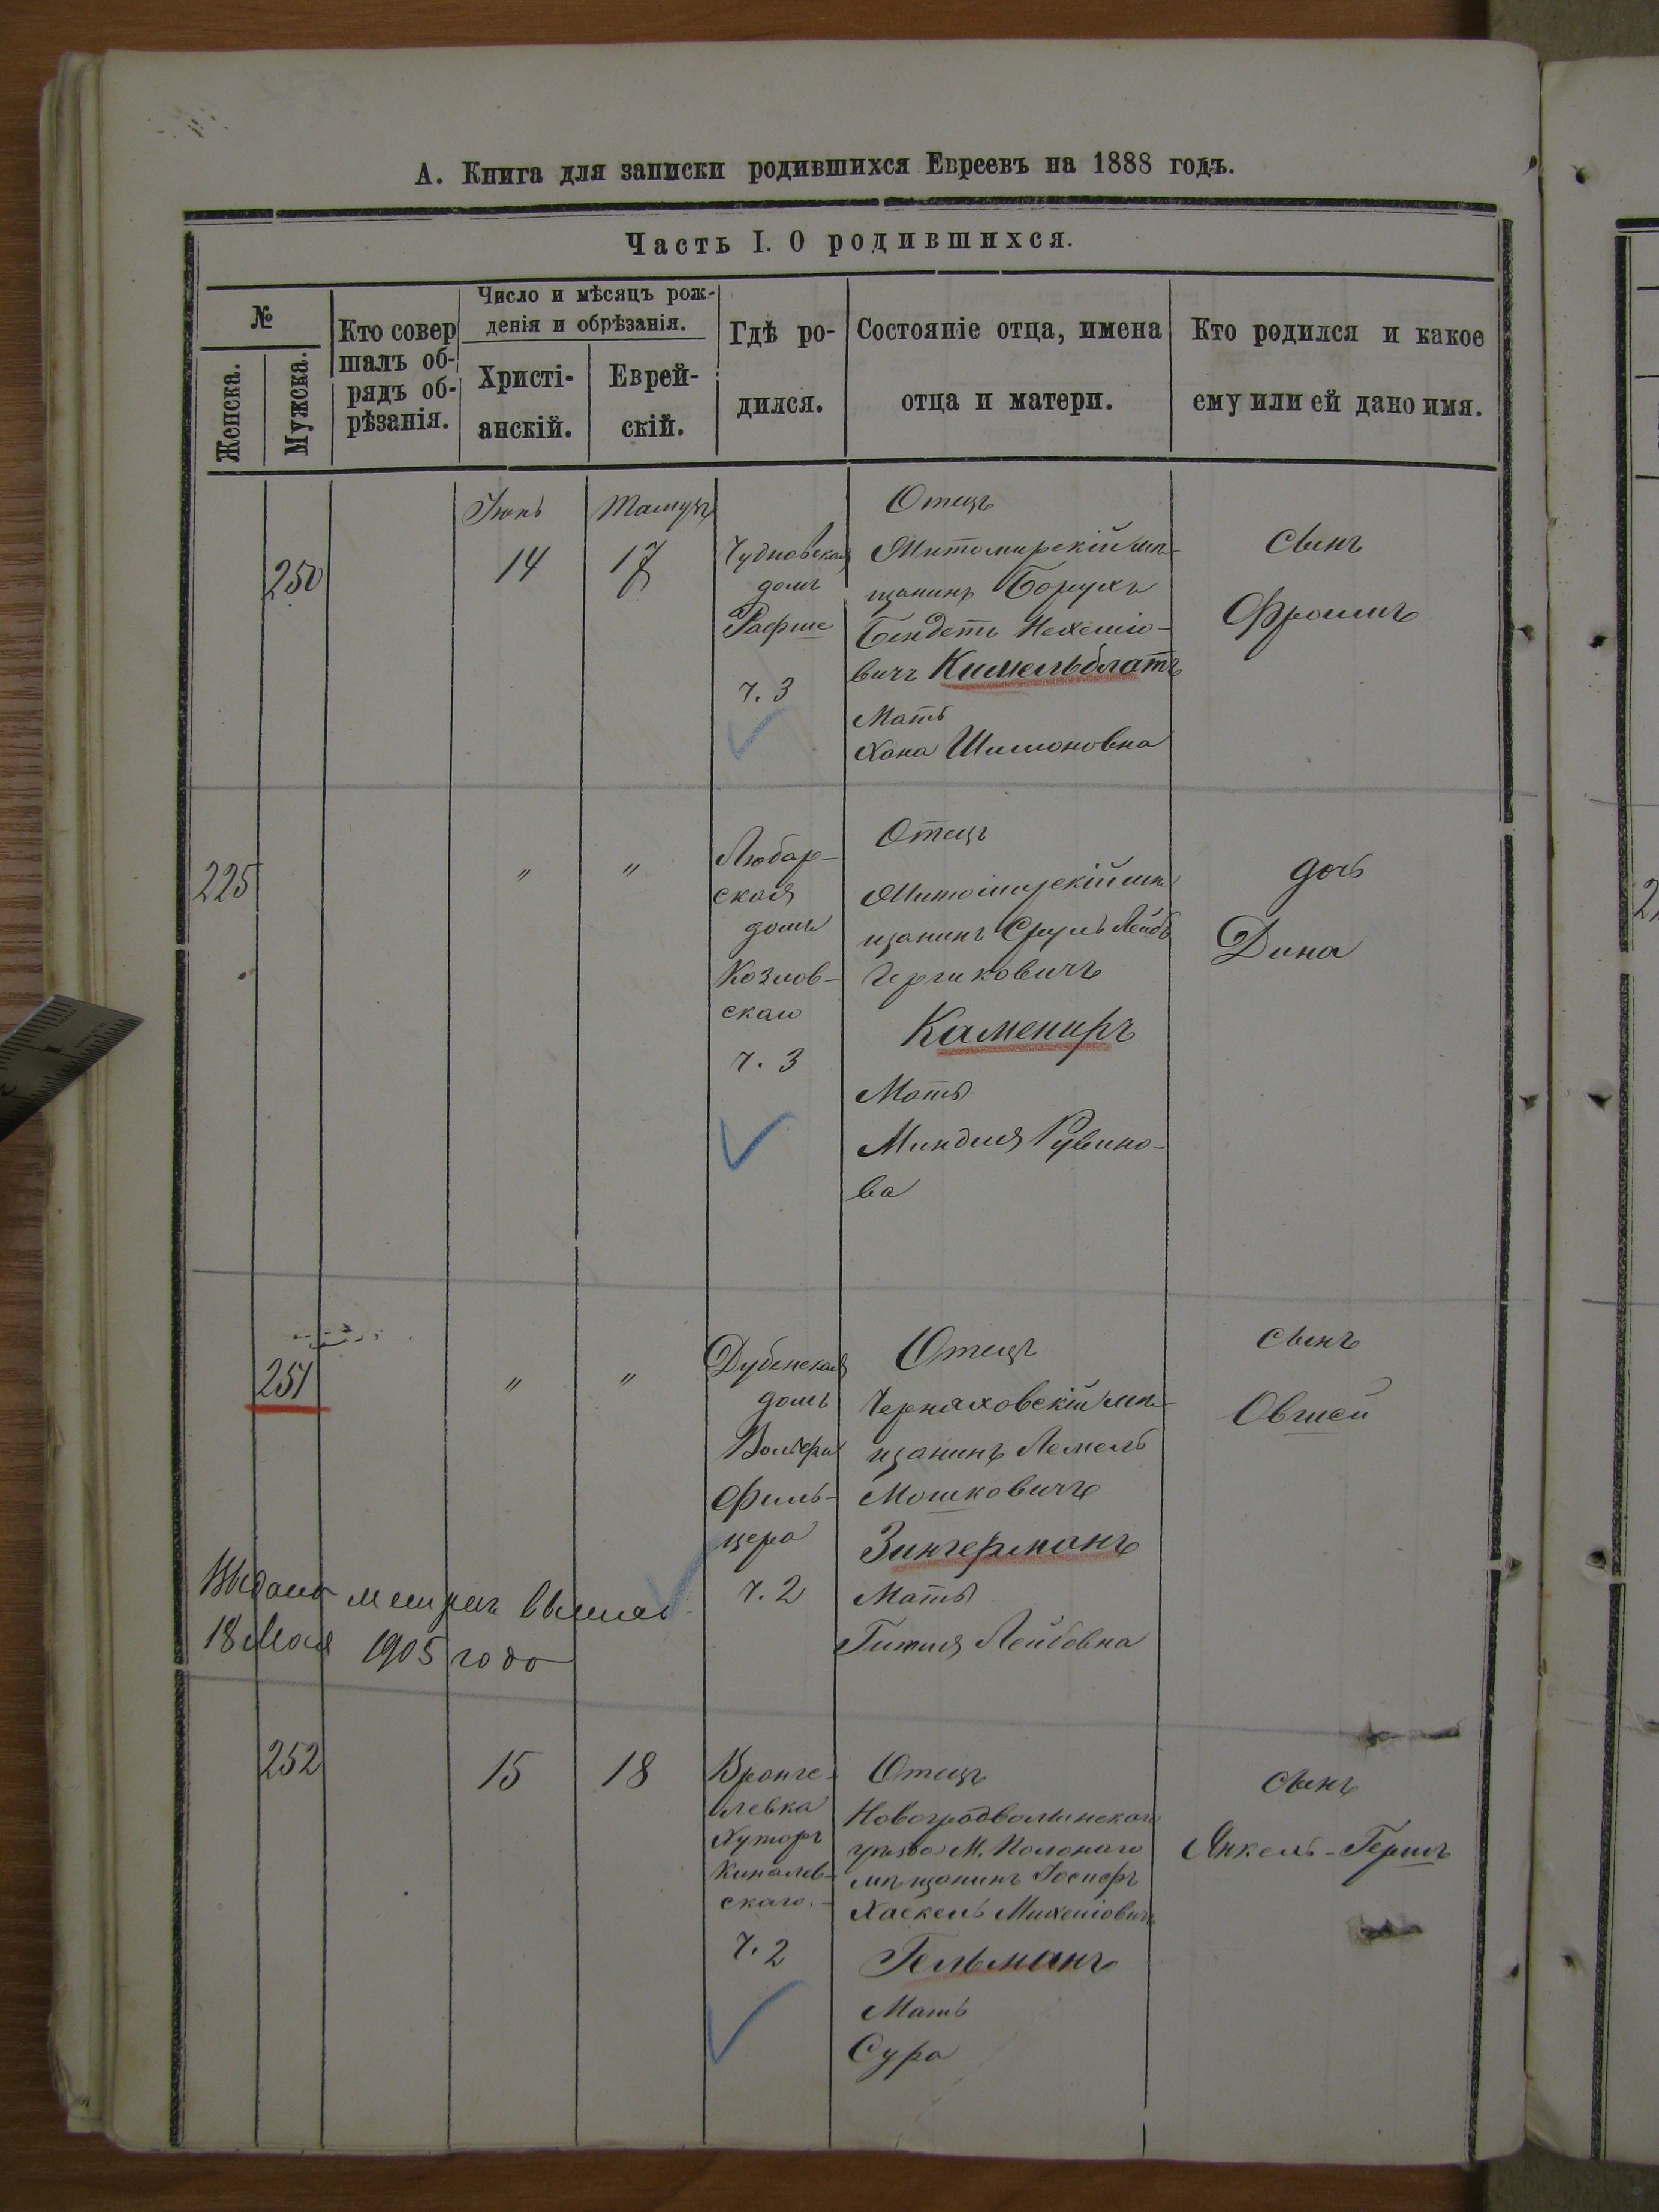 А. Книга для записки родившихся Евреевъ на 1888 годъ.
Часть I. О родившихся.
№
Женска.
Мужска.
Кто совер
шалъ об-
рядъ об-
рѣзанія.
Число и мѣсяцъ рож-
денія и обрѣзанія.
Христі-
анскій.
Еврей-
скій.
Гдѣ ро-
дился.
Состояніе отца, имена
отца и матери.
Кто родился и какое
ему или ей дано имя.
250
Іюнь
14
Тамуцъ
17
Чудновская
домъ
Рафше
ч. 3
Отецъ
Житомирскій мѣ-
щанинъ Борухъ
Бендетъ Нехеміо-
вичъ Кимельблатъ
Мать
Хана Шимоновна
сынъ
Фроимъ
225
"
"
Любар-
ская
домъ
Козлов-
скаи
ч. 3
Отецъ
Житомирскій мѣ
щанинъ Сруль Лейбъ
Гершковичъ
Камениръ
Мать
Миндля Рувино-
ва
дочь
Дина
251
"
"
Дубенская
домъ
Вольфа
Филь-
цера
ч. 2
Отецъ
Черняховскій мѣ-
щанинъ Лемель
Мошковичъ
Зингерманъ
Мать
Гитля Лейбовна
сынъ
Овшей
Выдана метрич выпись
18 Мая 1905 года
252
15
18
Вранге-
левка
Хуторъ
Киналев-
скаго.
ч. 2
Отецъ
Новоградволынскаго
уѣзда М. Полонаго
мѣщанинъ Іосифъ
Хаскель Михеліовичъ
Гельманъ
Мать
Сура
сынъ
Янкель-Гершъ